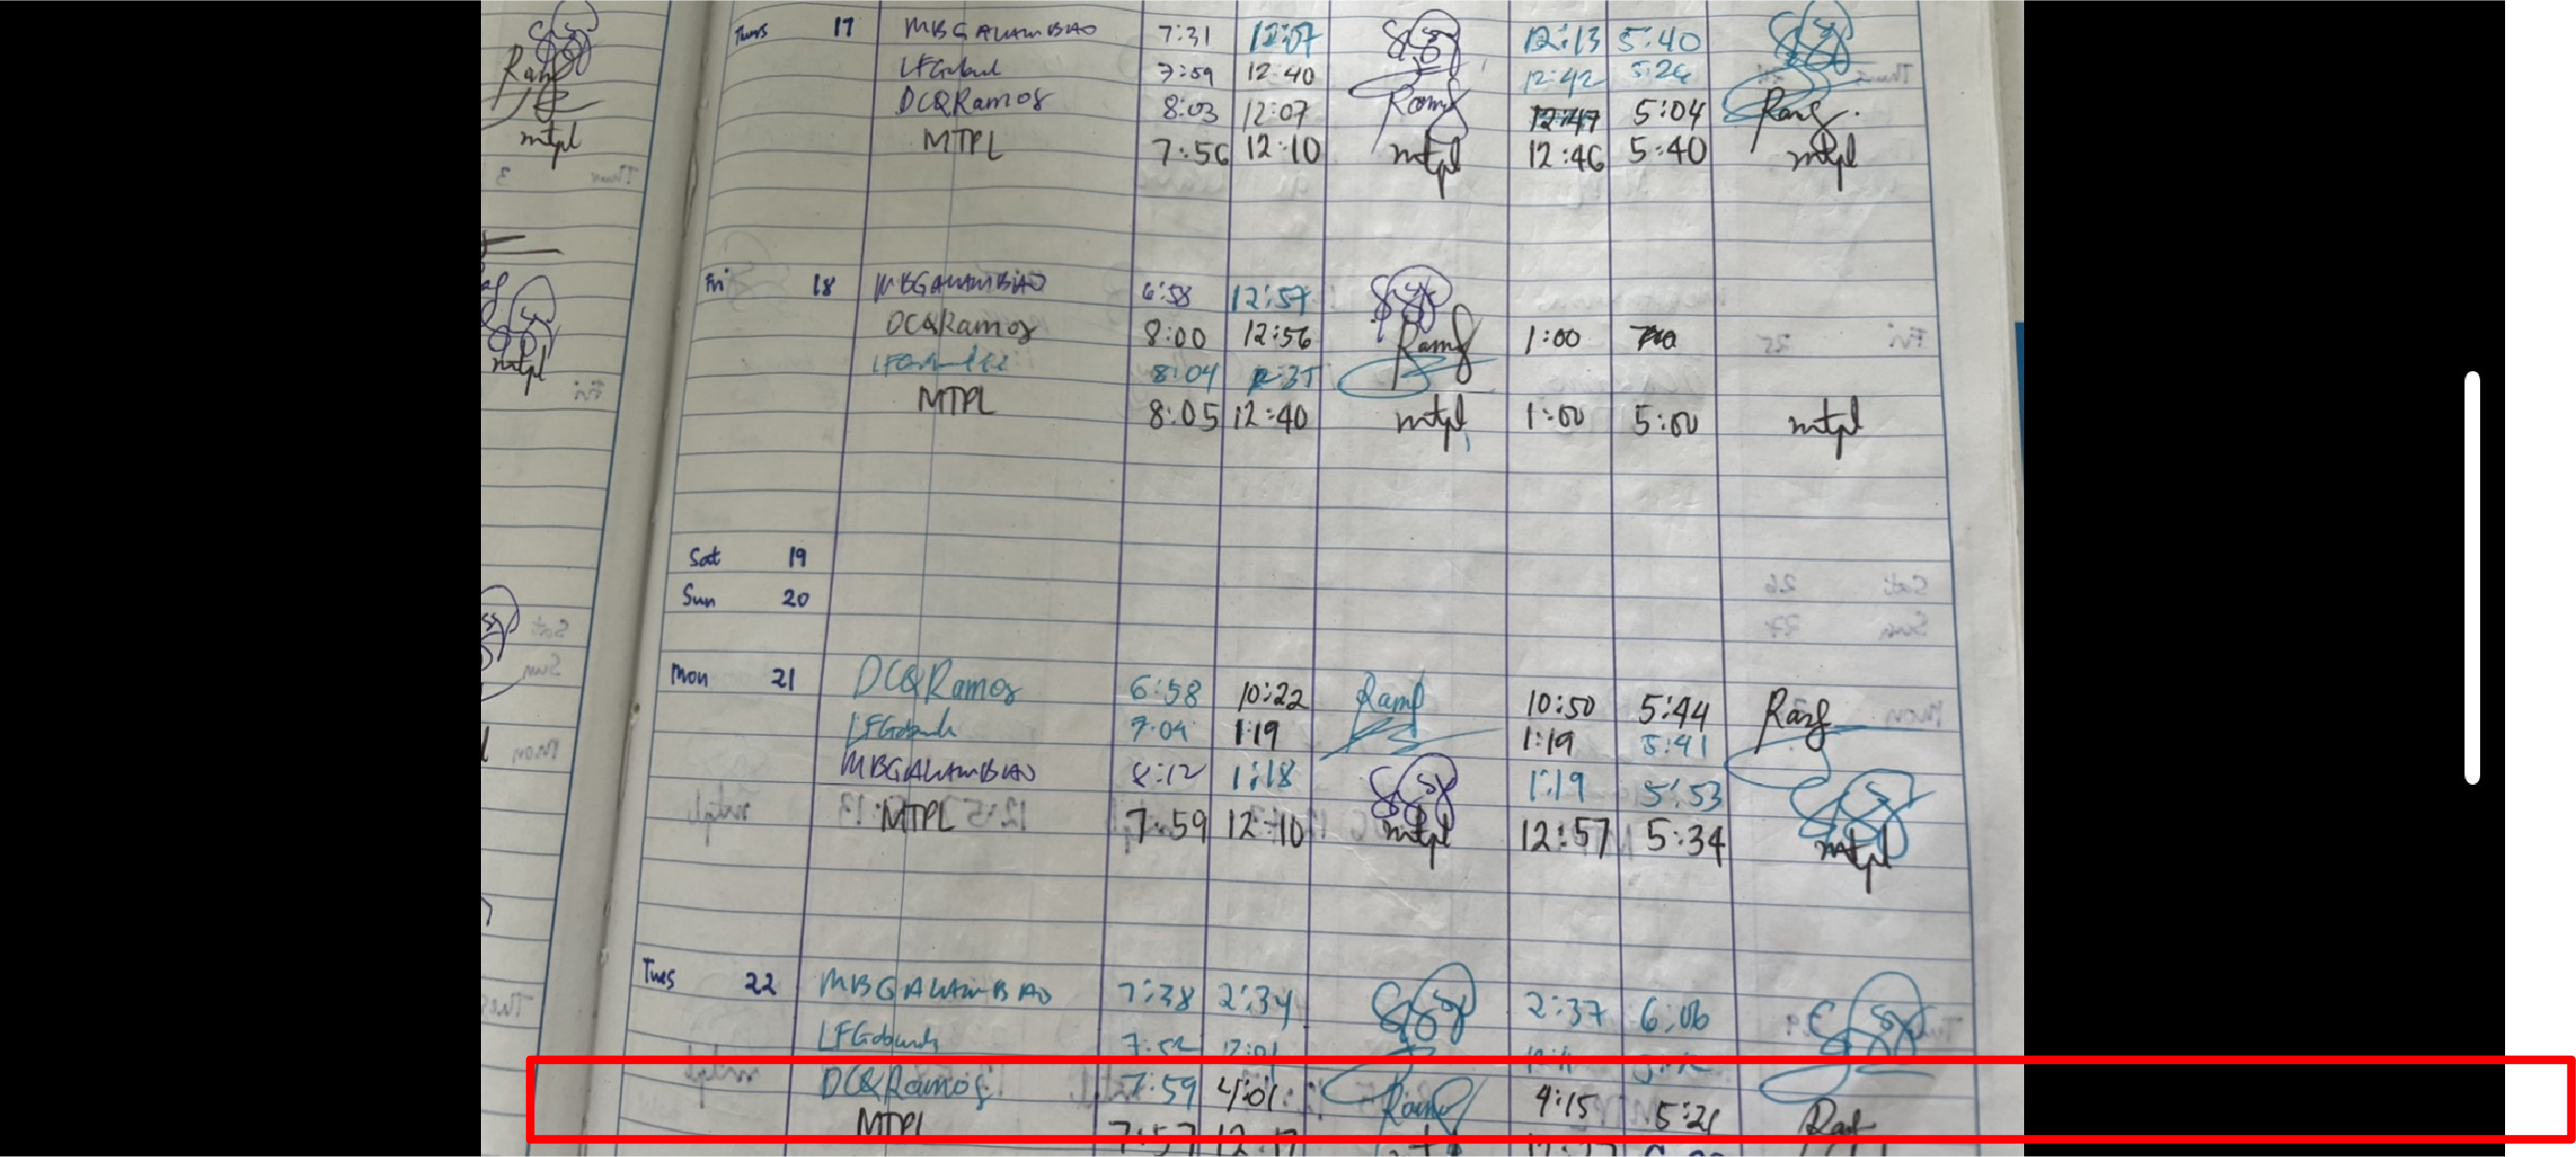 Ramf
mtpl
mtpl
Tues 17 MBGALAMBIAO 7:31 12:07 12:13 5:40
7:59 12:40 12:42 5:26
DCQRamos 8:03 12:07 Ramf 12:47 5:04 Ramf
MTPL 7:56 12:10 mtpl 12:46 5:40 mtpl
Fri 18 MBGALAMBIAO 6:58 12:57
DCQRamos 8:00 12:56 Ramf 1:00
8:04 12:35
MTPL 8:05 12:40 mtpl 1:00 5:00 mtpl
Sat 19
Sun 20
Mon 21 DCQRamos 6:58 10:22 Ramf 10:50 5:44 Ramf
7:04 1:19 1:19 5:41
MBGALAMBIAO 8:12 1:18 1:19 5:53
MTPL 7:59 12:10 mtpl 12:57 5:34 mtpl
Tues 22 MBGALAMBIAO 7:38 2:34 2:37 6:06
7:52 12:01
DCQRamos 7:59 4:01 Ramf 4:15 5:21 Ramf
MTPL 7:57 12:17